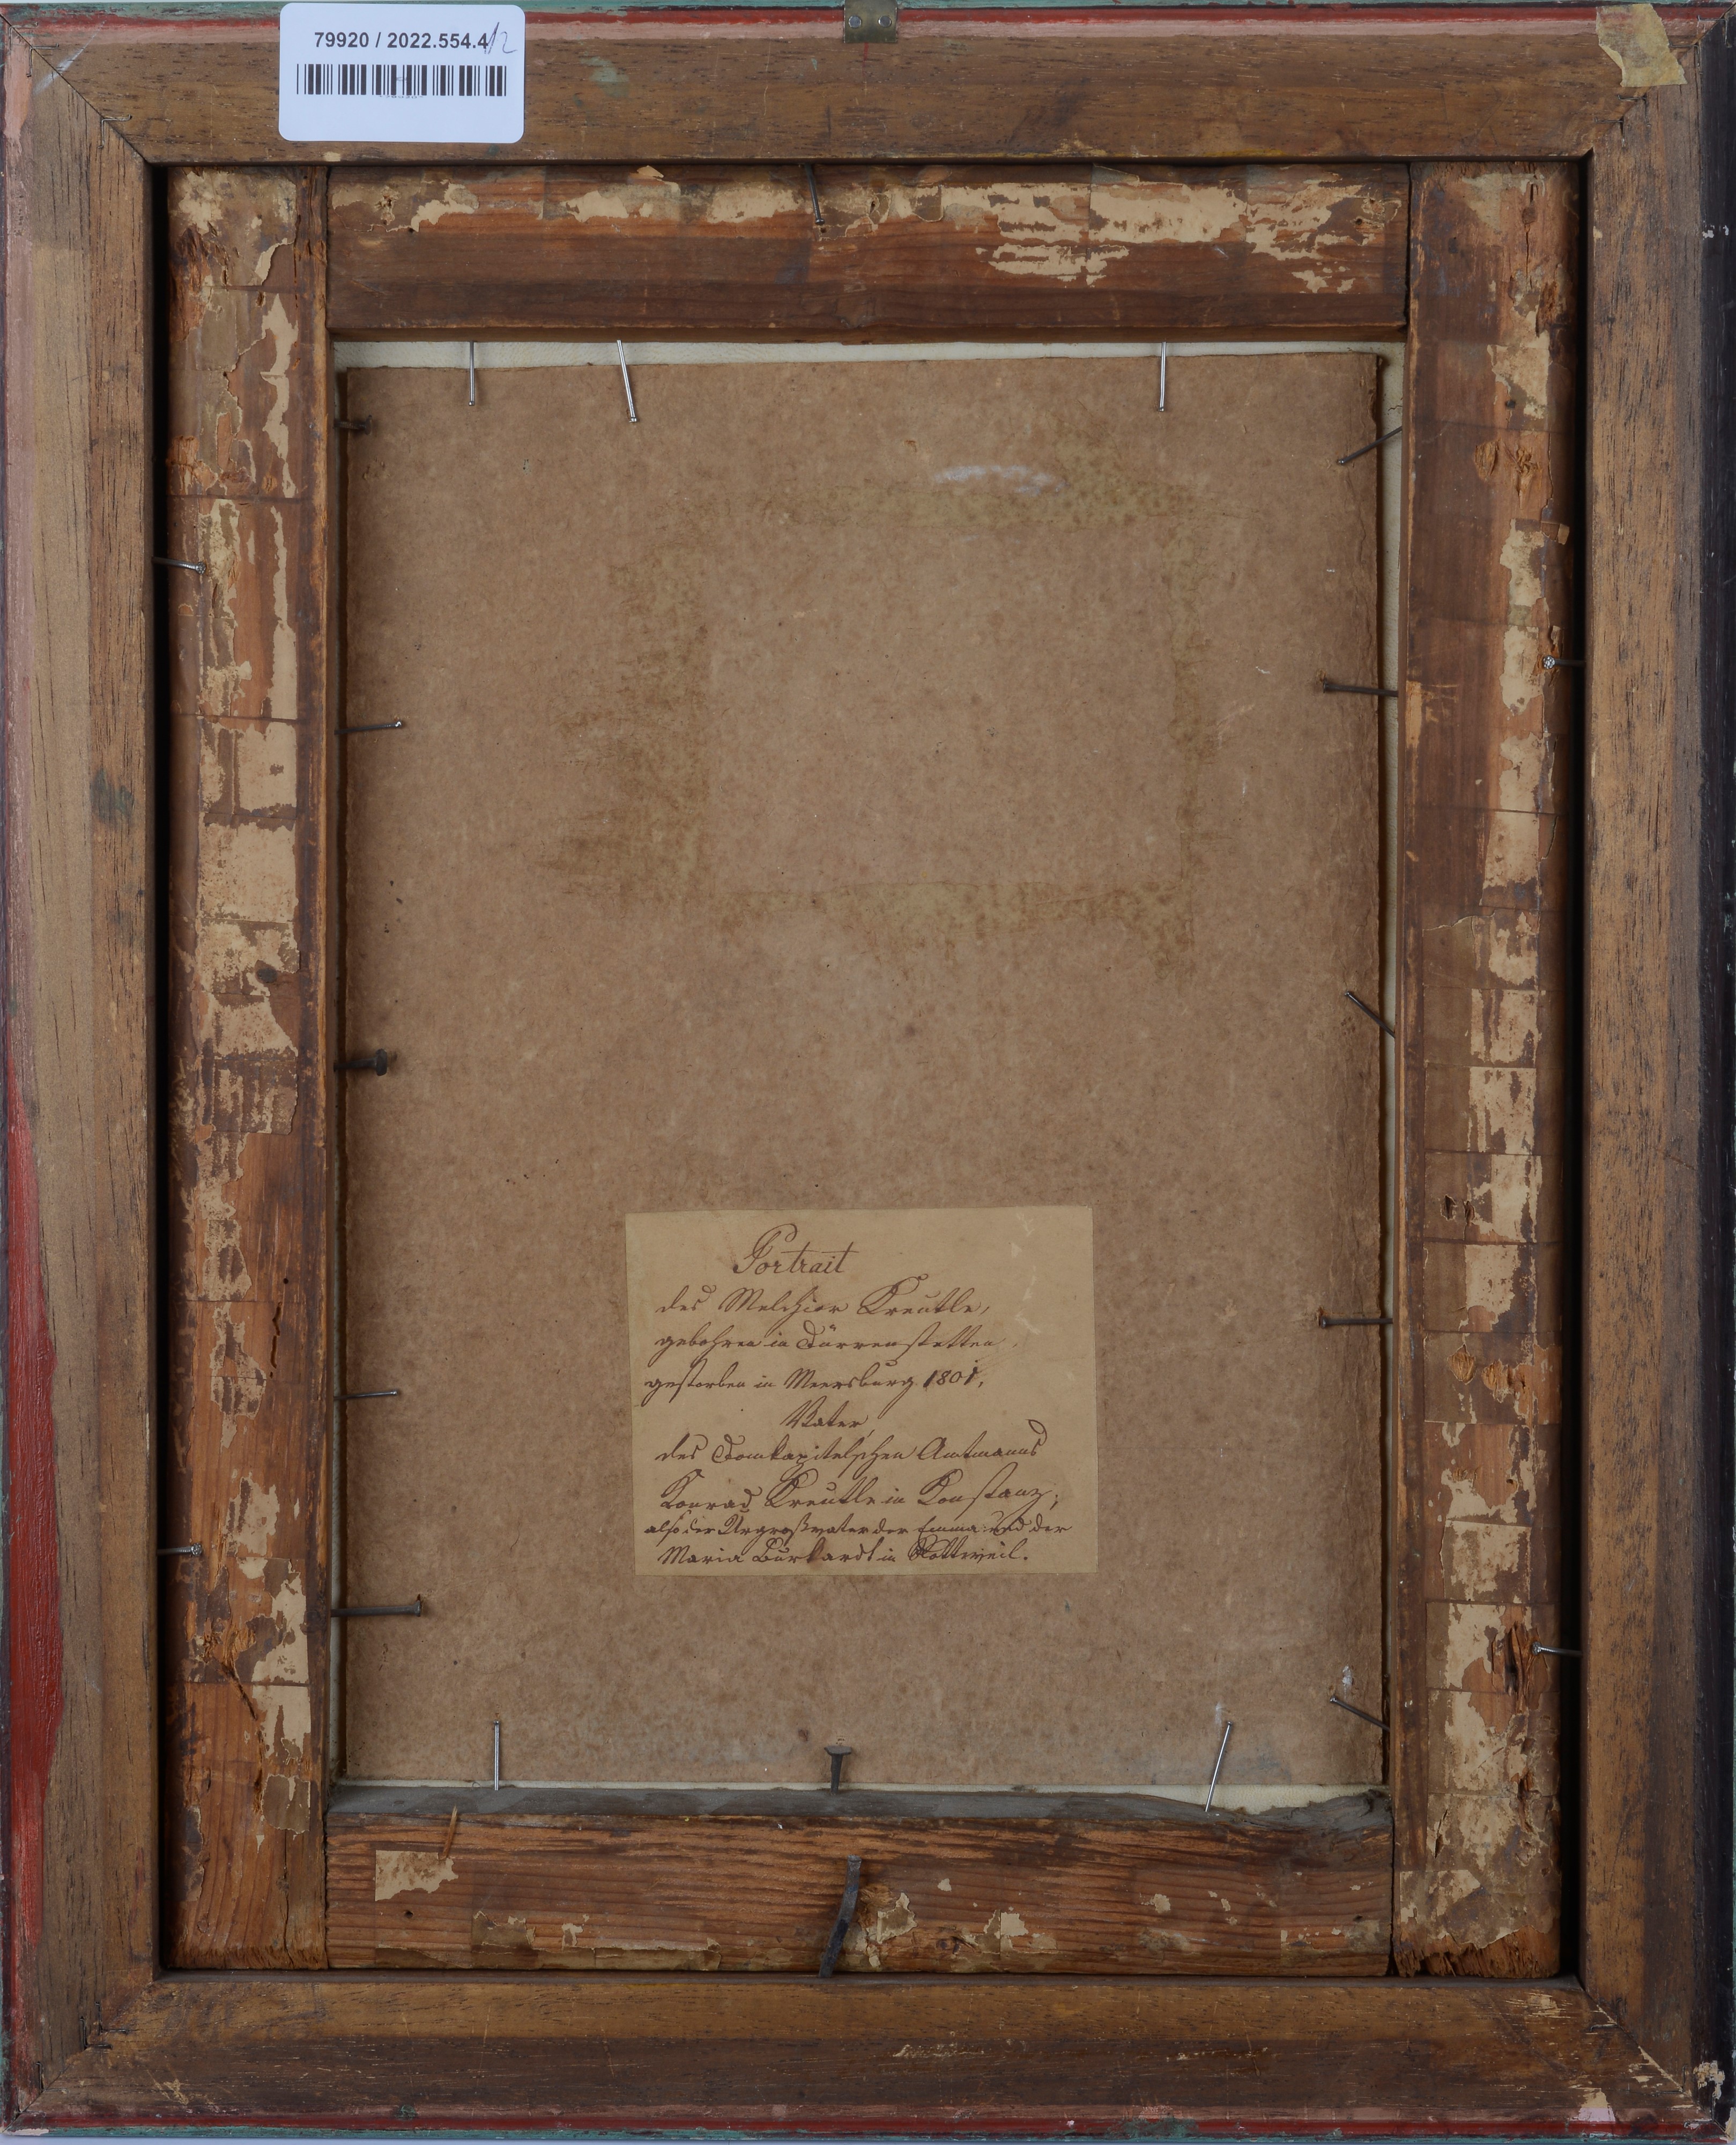 79920 / 2022.554.4/2
Portrait
des Melchior Kreutle,
gebohren in Dürrenstetten,
gestorben in Meersburg 1801,
Vater
des Domkapitelschen Amtmanns
Konrad Kreutle in Konstanz;
also der Urgroßvater der Emma und der
Maria Burkardt in Rottweil.